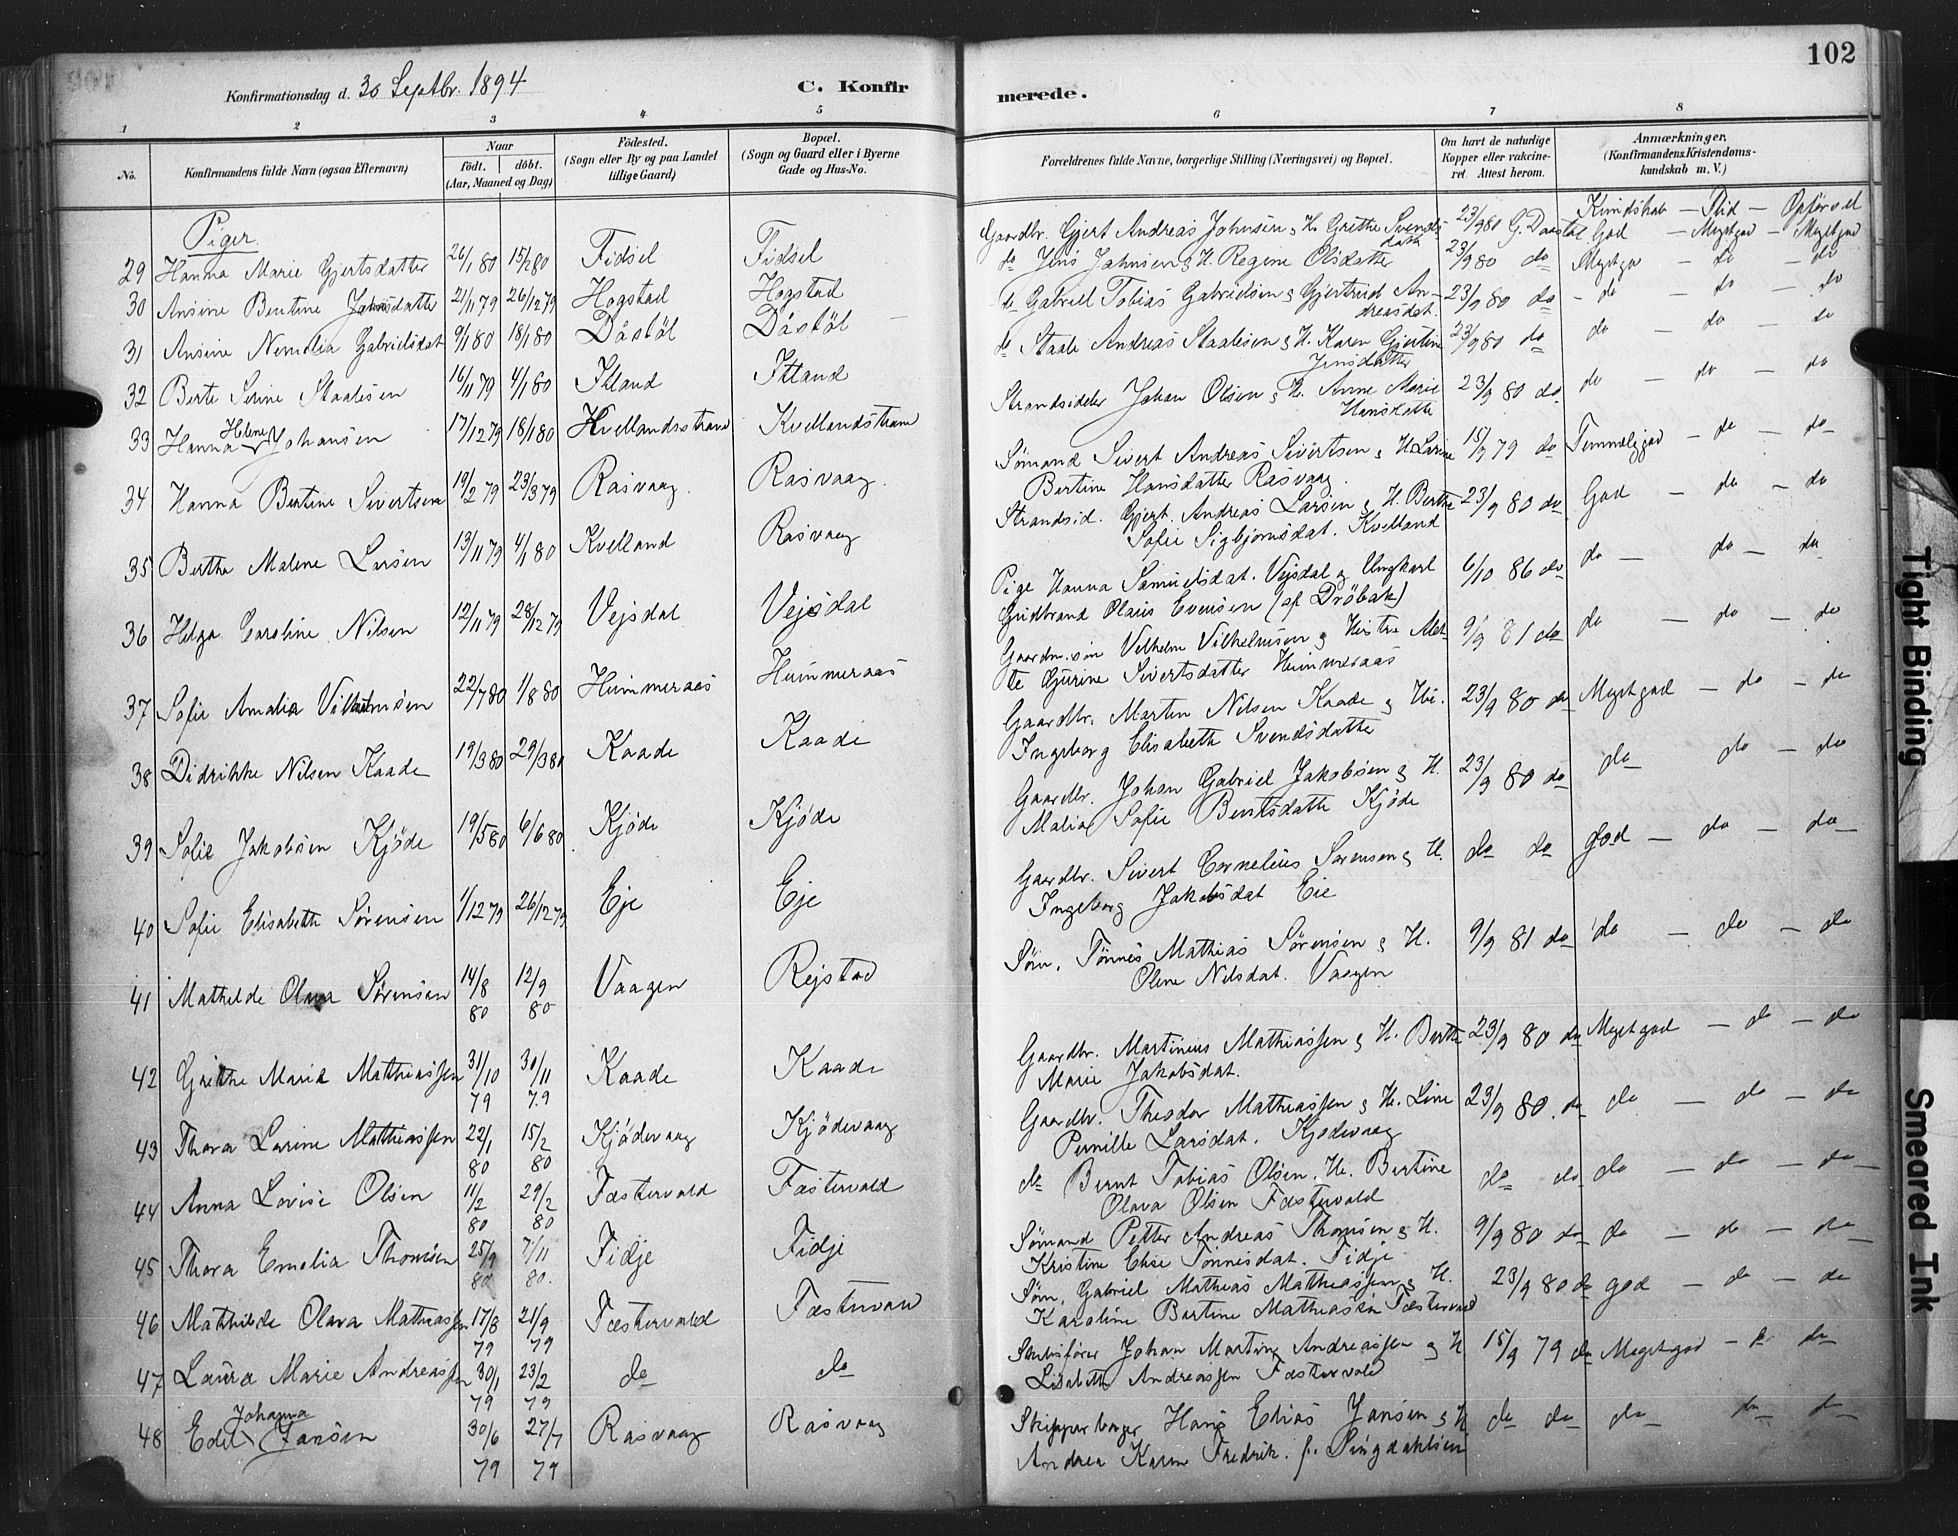 Konfirmationsdag d. 30 Septbr. 1894
C. Konfirmerede.
102
1 2 3 4 5 6 7 8
No.
Konfirmandens fulde Navn (ogsaa Efternavn)
Naar
født. døbt.
(Aar, Maaned og Dag)
Fødested.
(Sogn eller By og paa Landet
tillige Gaard)
Bopæl.
(Sogn og Gaard eller i Byerne
Gade og Hus-No.
Forældrenes fulde Navne, borgerlige Stilling (Næringsvei) og Bopæl.
Om havt de naturlige
Kopper eller vakcine-
ret. Attest herom.
Anmærkninger.
(Konfirmandens Kristendoms-
kundskab m. V.)
Kundskab — Flid — Opførsel
Piger.
29 Hanna Marie Gjertsdatter 26/1 80 15/2 80 Fidsel Fidsel Gaardbr. Gjert Andreas Johnsen & H. Grethe Svends-
datt 23/9 80 G. Daastøl God — Megetgod — Megetgod
30 Ansine Bertine Jahnsdatter 21/11 79 26/12 79 Hogstad Hogstad do Jens Jahnsen & H. Regine Olsdatter 23/9 80 do Megetgo — do — do
31 Ansine Nemalia Gabrielsdat 9/1 80 18/1 80 Dåstöl Dåstöl do Gabriel Tobias Gabrielsen & Gjertrud An-
dreasdat. 23/9 80 do - do — do — do
32 Berte Serine Staalesen 16/11 79 4/1 80 Itland Itland do Staale Andreas Staalesen & H. Karen Gjertine
Jensdatter 23/9 80 do do — do — do
33 Hanna Helene Johansen 17/12 79 18/1 80 Kvellandsstrand Kvellandstrand Strandsidder Johan Olsen & H. Anne Marie
Hansdatte 23/9 80 do do — do — do
34 Hanna Bertine Sivertsen 19/2 79 23/3 79 Rasvaag Rasvaag. Sømand Sivert Andreas Sivertsen & H. Larine
Bertine Hansdatter Rasvaag. 15/9 79 do Temmeliggod — do — do
35 Berthe Malene Larsen 13/11 79 4/1 80 Kvelland Rasvaag Strandsid. Gjert Andreas Larsen & H. Berthe
Sofie Sigbjørnsdat. Kvelland 23/9 80 do God — do — do
36 Helga Caroline Nilsen 12/11 79 28/12 79 Vejsdal Vejsdal Pige Hanna Samuelsdat. Vejsdal og Ungkarl
Gudbrand Olaus Evensen (af Drøbak) 6/10 86 do do — do — do
37 Sofie Amalia Vilhelmsen 22/7 80 1/8 80 Hummeraas Hummeraas Gaardm.søn Vilhelm Vilhelmsen & Hustru Met-
te Gurine Sivertsdatter Hummeraas 9/9 81 do do — do — do
38 Didrikke Nilsen Kaade 19/3 80 29/3 80 Kaade Kaade Gaardbr. Marten Nilsen Kaade & Hu.
Ingeborg Elisabeth Svendsdatter 23/9 80 do Megetgod — do — do
39 Sofie Jakobsen Kjøde 19/5 80 6/6 80 Kjøde Kjøde Gaardbr. Johan Gabriel Jakobsen & H.
Malia Sofie Berntsdatte Kjøde 23/9 80 do do do — do
40 Sofie Elisabeth Sørensen 1/12 79 26/12 79 Eje Eje Gaardbr. Sivert Cornelius Sørensen & H.
Ingeborg Jakobsdat Eie do do god — do — do
41 Mathelde Olava Sørensen 14/8 80 12/9 80 Vaagen Rejstad Søm. Tønnes Mathias Sørensen & H.
Olene Nilsdat. Vaagen 9/9 81 do do — do — do
42 Grethe Marie Mathiassen 31/10 79 30/11 79 Kaade Kaade Gaardbr. Martinius Mathiassen & H. Berthe
Marie Jakobsdat. 23/9 80 do Megetgod — do — do
43 Thora Larine Mathiassen 22/1 80 15/2 80 Kjødevaag Kjødevaag Gaardbr. Theodor Mathiassen & H. Line
Pernille Larsdat. Kjødevaag 23/9 80 do do — do — do
44 Anna Lovise Olsen 11/2 80 29/2 80 Fæstervold Fæstervold do Bernt Tobias Olsen. H. Bertine
Olava Olsen Fæstervold do do do — do — do
45 Thora Emalia Thomsen 25/9 80 7/11 80. Fidje Fidje Sømand Petter Andreas Thomsen & H.
Kristine Elise Tønnesdat. Fidje 9/9 80 do do — do — do
46 Mathilde Olava Mathiassen 17/8 79 21/9 79 Fæstervold Fæstervold Søm. Gabriel Mathias Mathiassen & H.
Karoline Bertine Mathiassen Fæstervold 23/9 80 do god — do — do
47 Laura Marie Andreassen 30/1 79 23/2 79 do do Skibsfører Johan Martin Andreassen & H
Lisabeth Andreassen Fæstervold 15/9 79 do Megetgod — do do
48 Edel Johanna Jansen 30/6 79 27/7 79 Rasvaag Rasvaag Skipperborger Hans Elias Jansen & H
Andrea Karine Fredrik. f. Singdahlsen do do do do — do
Tight Binding
Smeared Ink